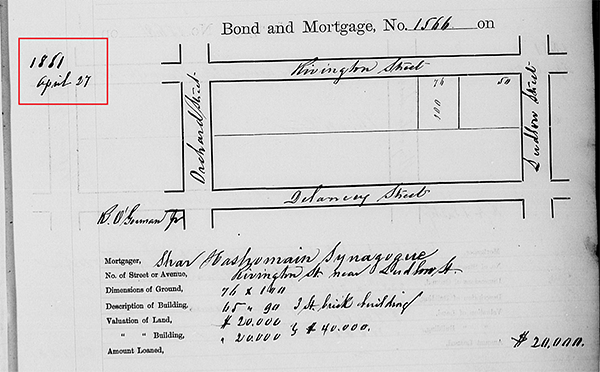 Bond and Mortgage, No. 1566 on
1861
April 27
Rivington Street
76
50
100
Orchard Street
Ludlow Street
Delancey Street
R. O'Gorman Jr
Mortgager, Shar Hashomain Synagogue
No. of Street or Avenue, Rivington St. near Ludlow St.
Dimensions of Ground, 76 x 100
Description of Building, 65 " 90 3 St. brick building
Valuation of Land, $ 20.000 } $ 40.000.
" " Building, " 20.000
Amount Loaned, $ 20,000.